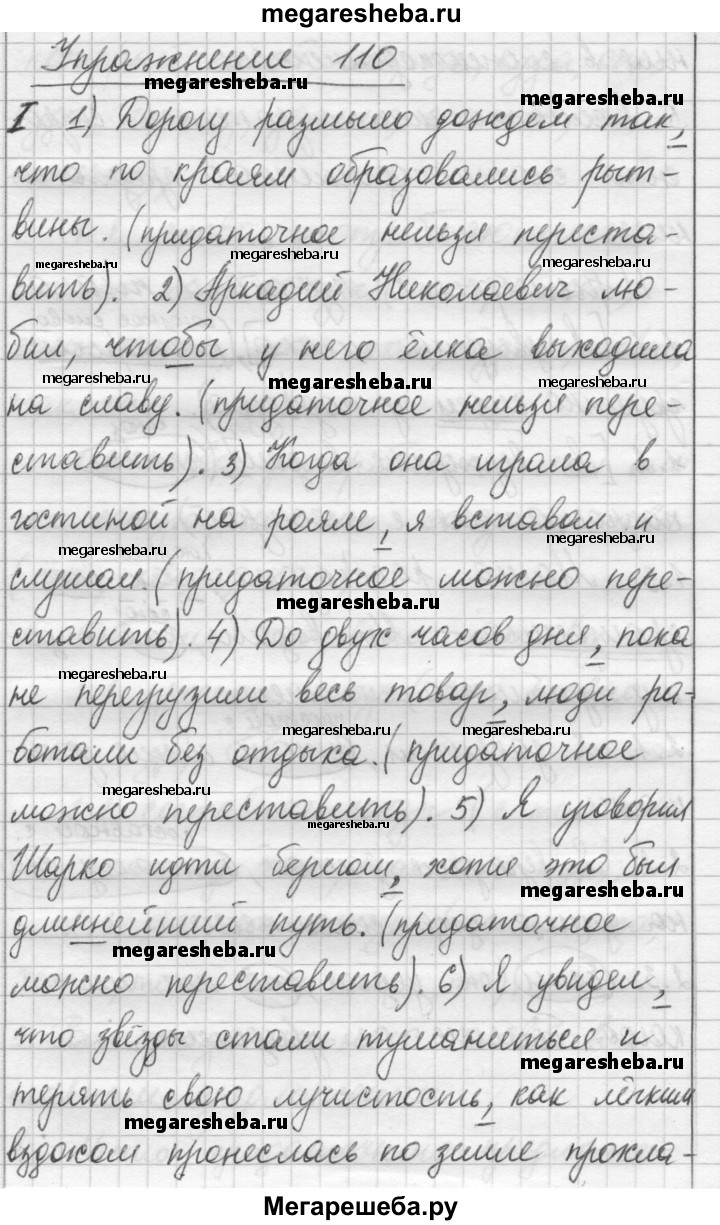 megaresheba.ru
Упражнение 110
megaresheba.ru
megaresheba.ru
I 1) Дорогу размыло дождем так,
что по краям образовались рыт-
вины. (придаточное нельзя переста-
megaresheba.ru
megaresheba.ru
megaresheba.ru
вить). 2) Аркадий Николаевич лю-
бил, чтобы у него ёлка выходила
megaresheba.ru
megaresheba.ru
megaresheba.ru
на славу. (придаточное нельзя пере-
ставить). 3) Когда она играла в
гостиной на рояле, я вставал и
megaresheba.ru
megaresheba.ru
слушал. (придаточное можно пере-
megaresheba.ru
ставить). 4) До двух часов дня, пока
megaresheba.ru
не перегрузили весь товар, люди ра-
megaresheba.ru
ботали без отдыха. (придаточное
megaresheba.ru
можно переставить). 5) Я уговорил
megaresheba.ru
Шарко идти берегом, хотя это был
megaresheba.ru
длиннейший путь. (придаточное
megaresheba.ru
можно переставить). 6) Я увидел,
что звёзды стали туманиться и
megaresheba.ru
терять свою лучистость, как лёгким
megaresheba.ru
вздохом пронеслась по земле прохла-
Мегарешеба.ру